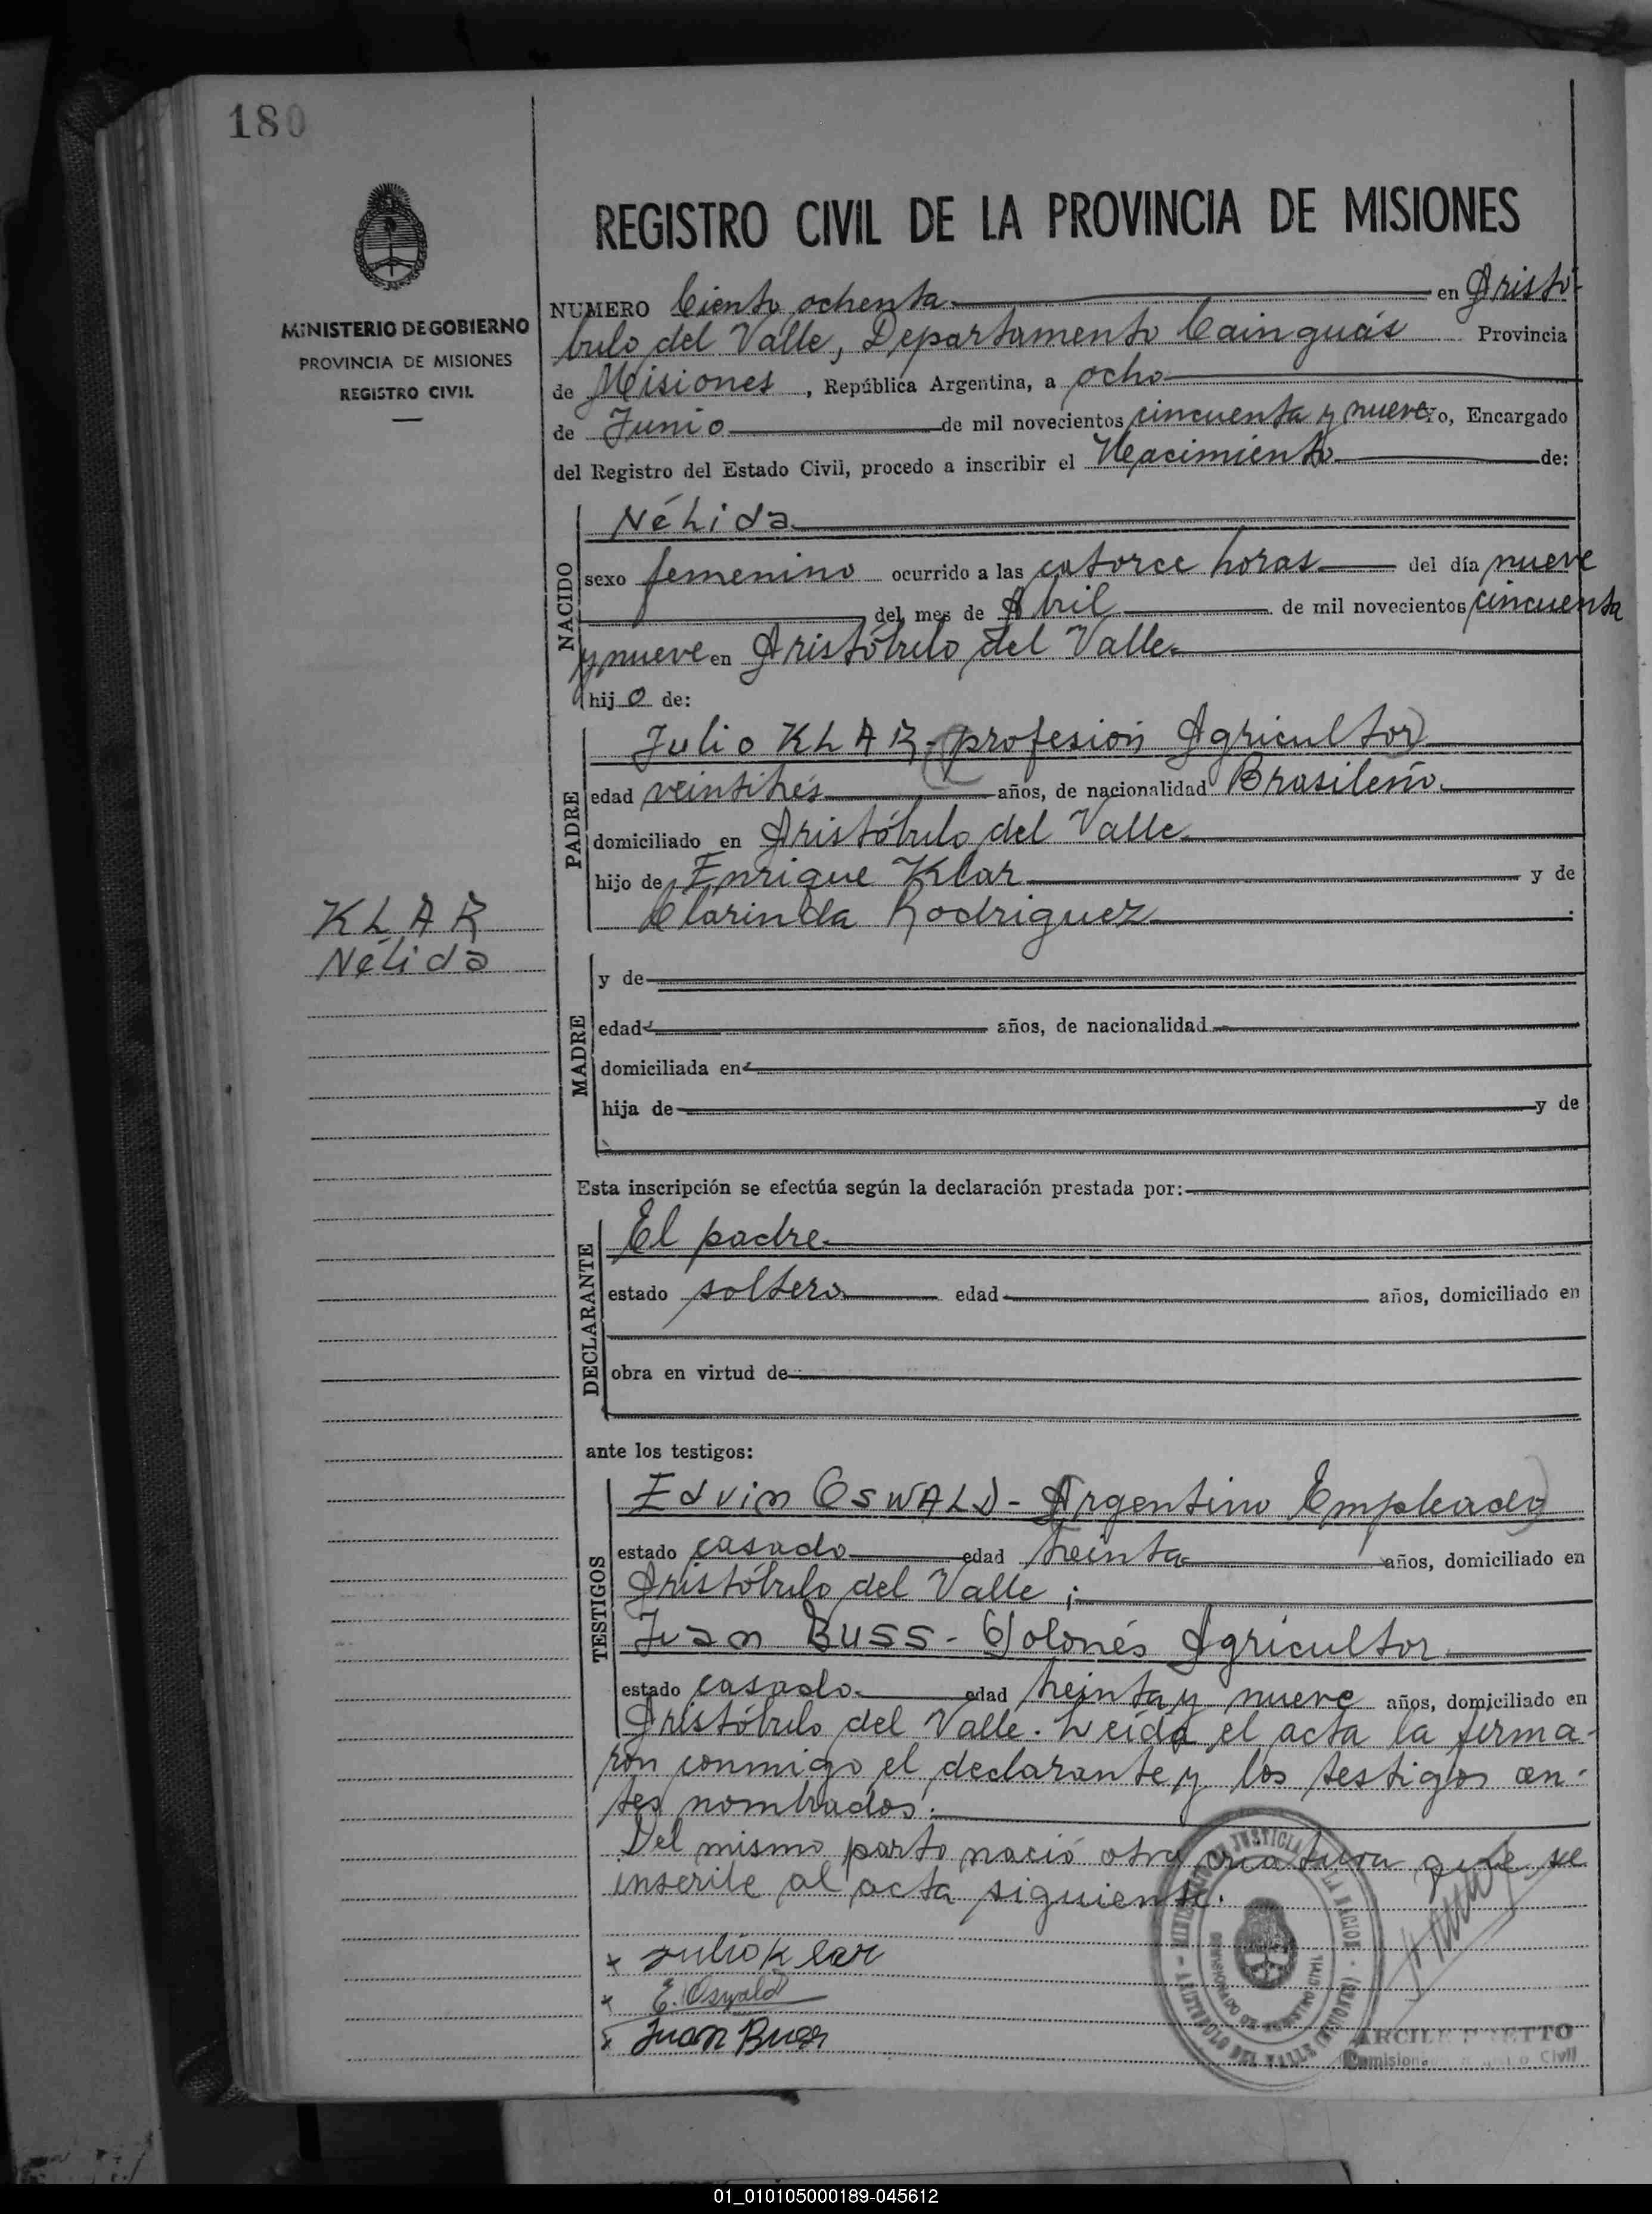 180
MINISTERIO DE GOBIERNO
PROVINCIA DE MISIONES
REGISTRO CIVIL
REGISTRO CIVIL DE LA PROVINCIA DE MISIONES
NUMERO Ciento ochenta en Aristó-
bulo del Valle, Departamento Cainguás Provincia
de Misiones, República Argentina, a ocho
de Junio de mil novecientos cincuenta y nueve yo, Encargado
del Registro del Estado Civil, procedo a inscribir el Nacimiento de:
NACIDO
Nélida
sexo femenino ocurrido a las catorce horas del día nueve
del mes de Abril de mil novecientos cincuenta
y nueve en Aristóbulo del Valle
hijo de:
PADRE
Julio KLAR - (profesión Agricultor)
edad veintitrés años, de nacionalidad Brasileño.
domiciliado en Aristóbulo del Valle
hijo de Enrique Klar y de
Clarinda Rodriguez.
KLAR
Nélida
MADRE
y de
edad años, de nacionalidad
domiciliada en
hija de y de
Esta inscripción se efectúa según la declaración prestada por:
DECLARANTE
El padre.
estado soltero edad años, domiciliado en
obra en virtud de
ante los testigos:
TESTIGOS
Edvin OSWALD - Argentino Empleado)
estado casado edad treinta años, domiciliado en
Aristóbulo del Valle;
Juan BUSS - Polonés Agricultor
estado casado. edad treinta y nueve años, domiciliado en
Aristóbulo del Valle. Leída el acta la firma-
ron conmigo el declarante y los testigos an-
tes nombrados:
Del mismo parto nació otra criatura que se
inscribe al acta siguiente.
+ Julio Klar
+ E. Oswald
x Juan Buss
JUSTICIA LA NACION - ARISTOBULO DEL VALLE (MISIONES)
REGISTRO CIVIL
Civil
01_010105000189-045612